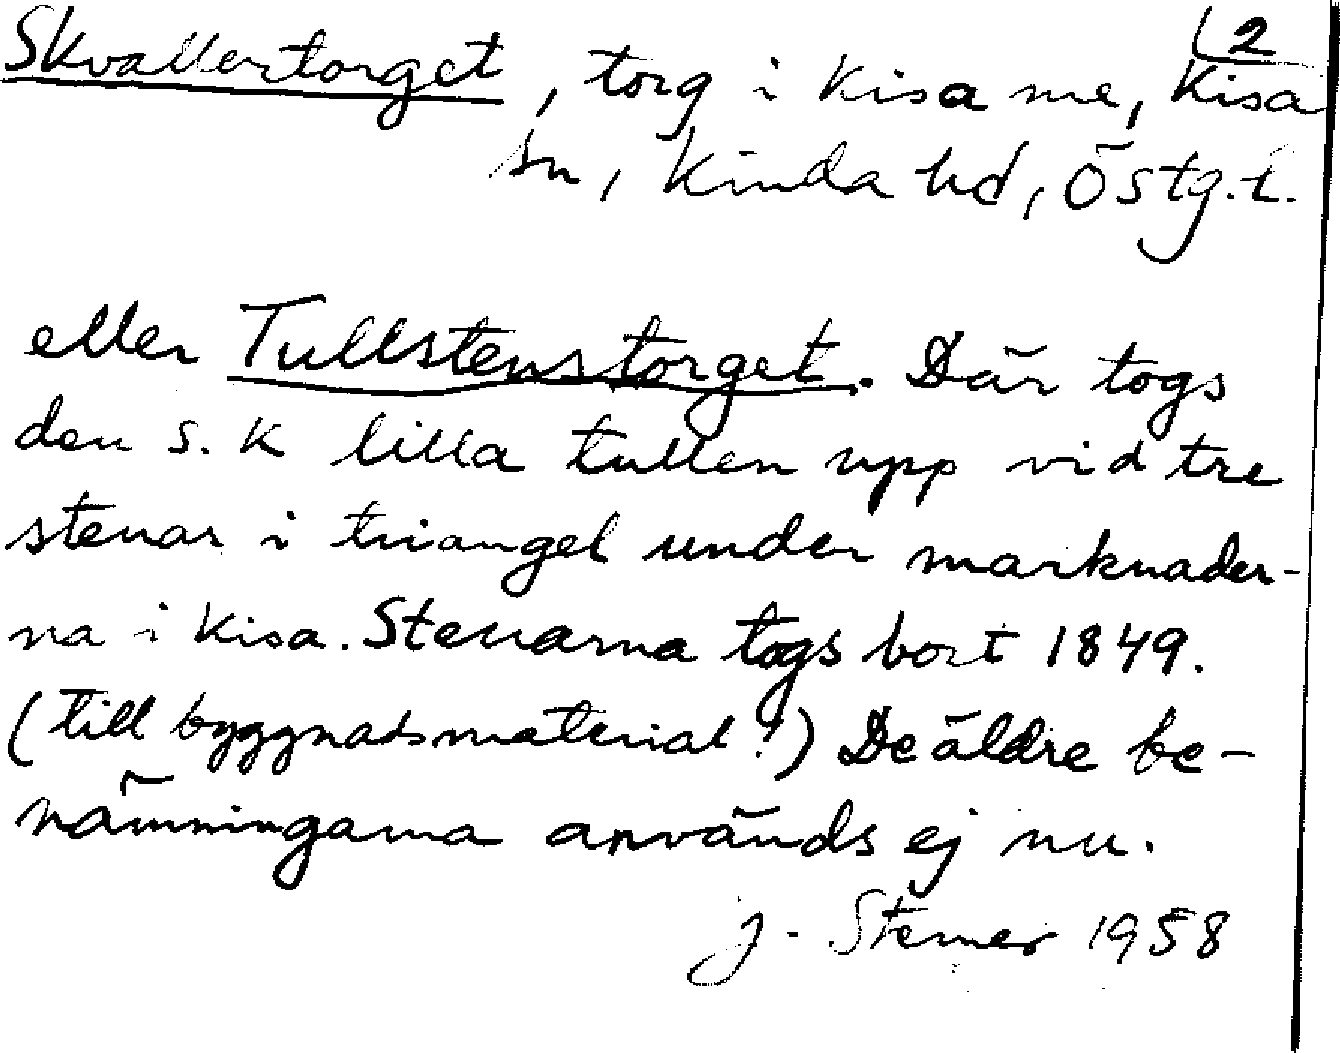 2
Skvallertorget, torg i Kisa me, Kisa
sn, Kinda hd, Östg.l.
eller Tullstenstorget. Där togs
den s.k lilla tullen upp vid tre
stenar i triangel under marknader-
na i Kisa. Stenarna togs bort 1849.
(till byggnadsmaterial!) De äldre be-
nämningarna används ej nu.
J. Sterner 1958